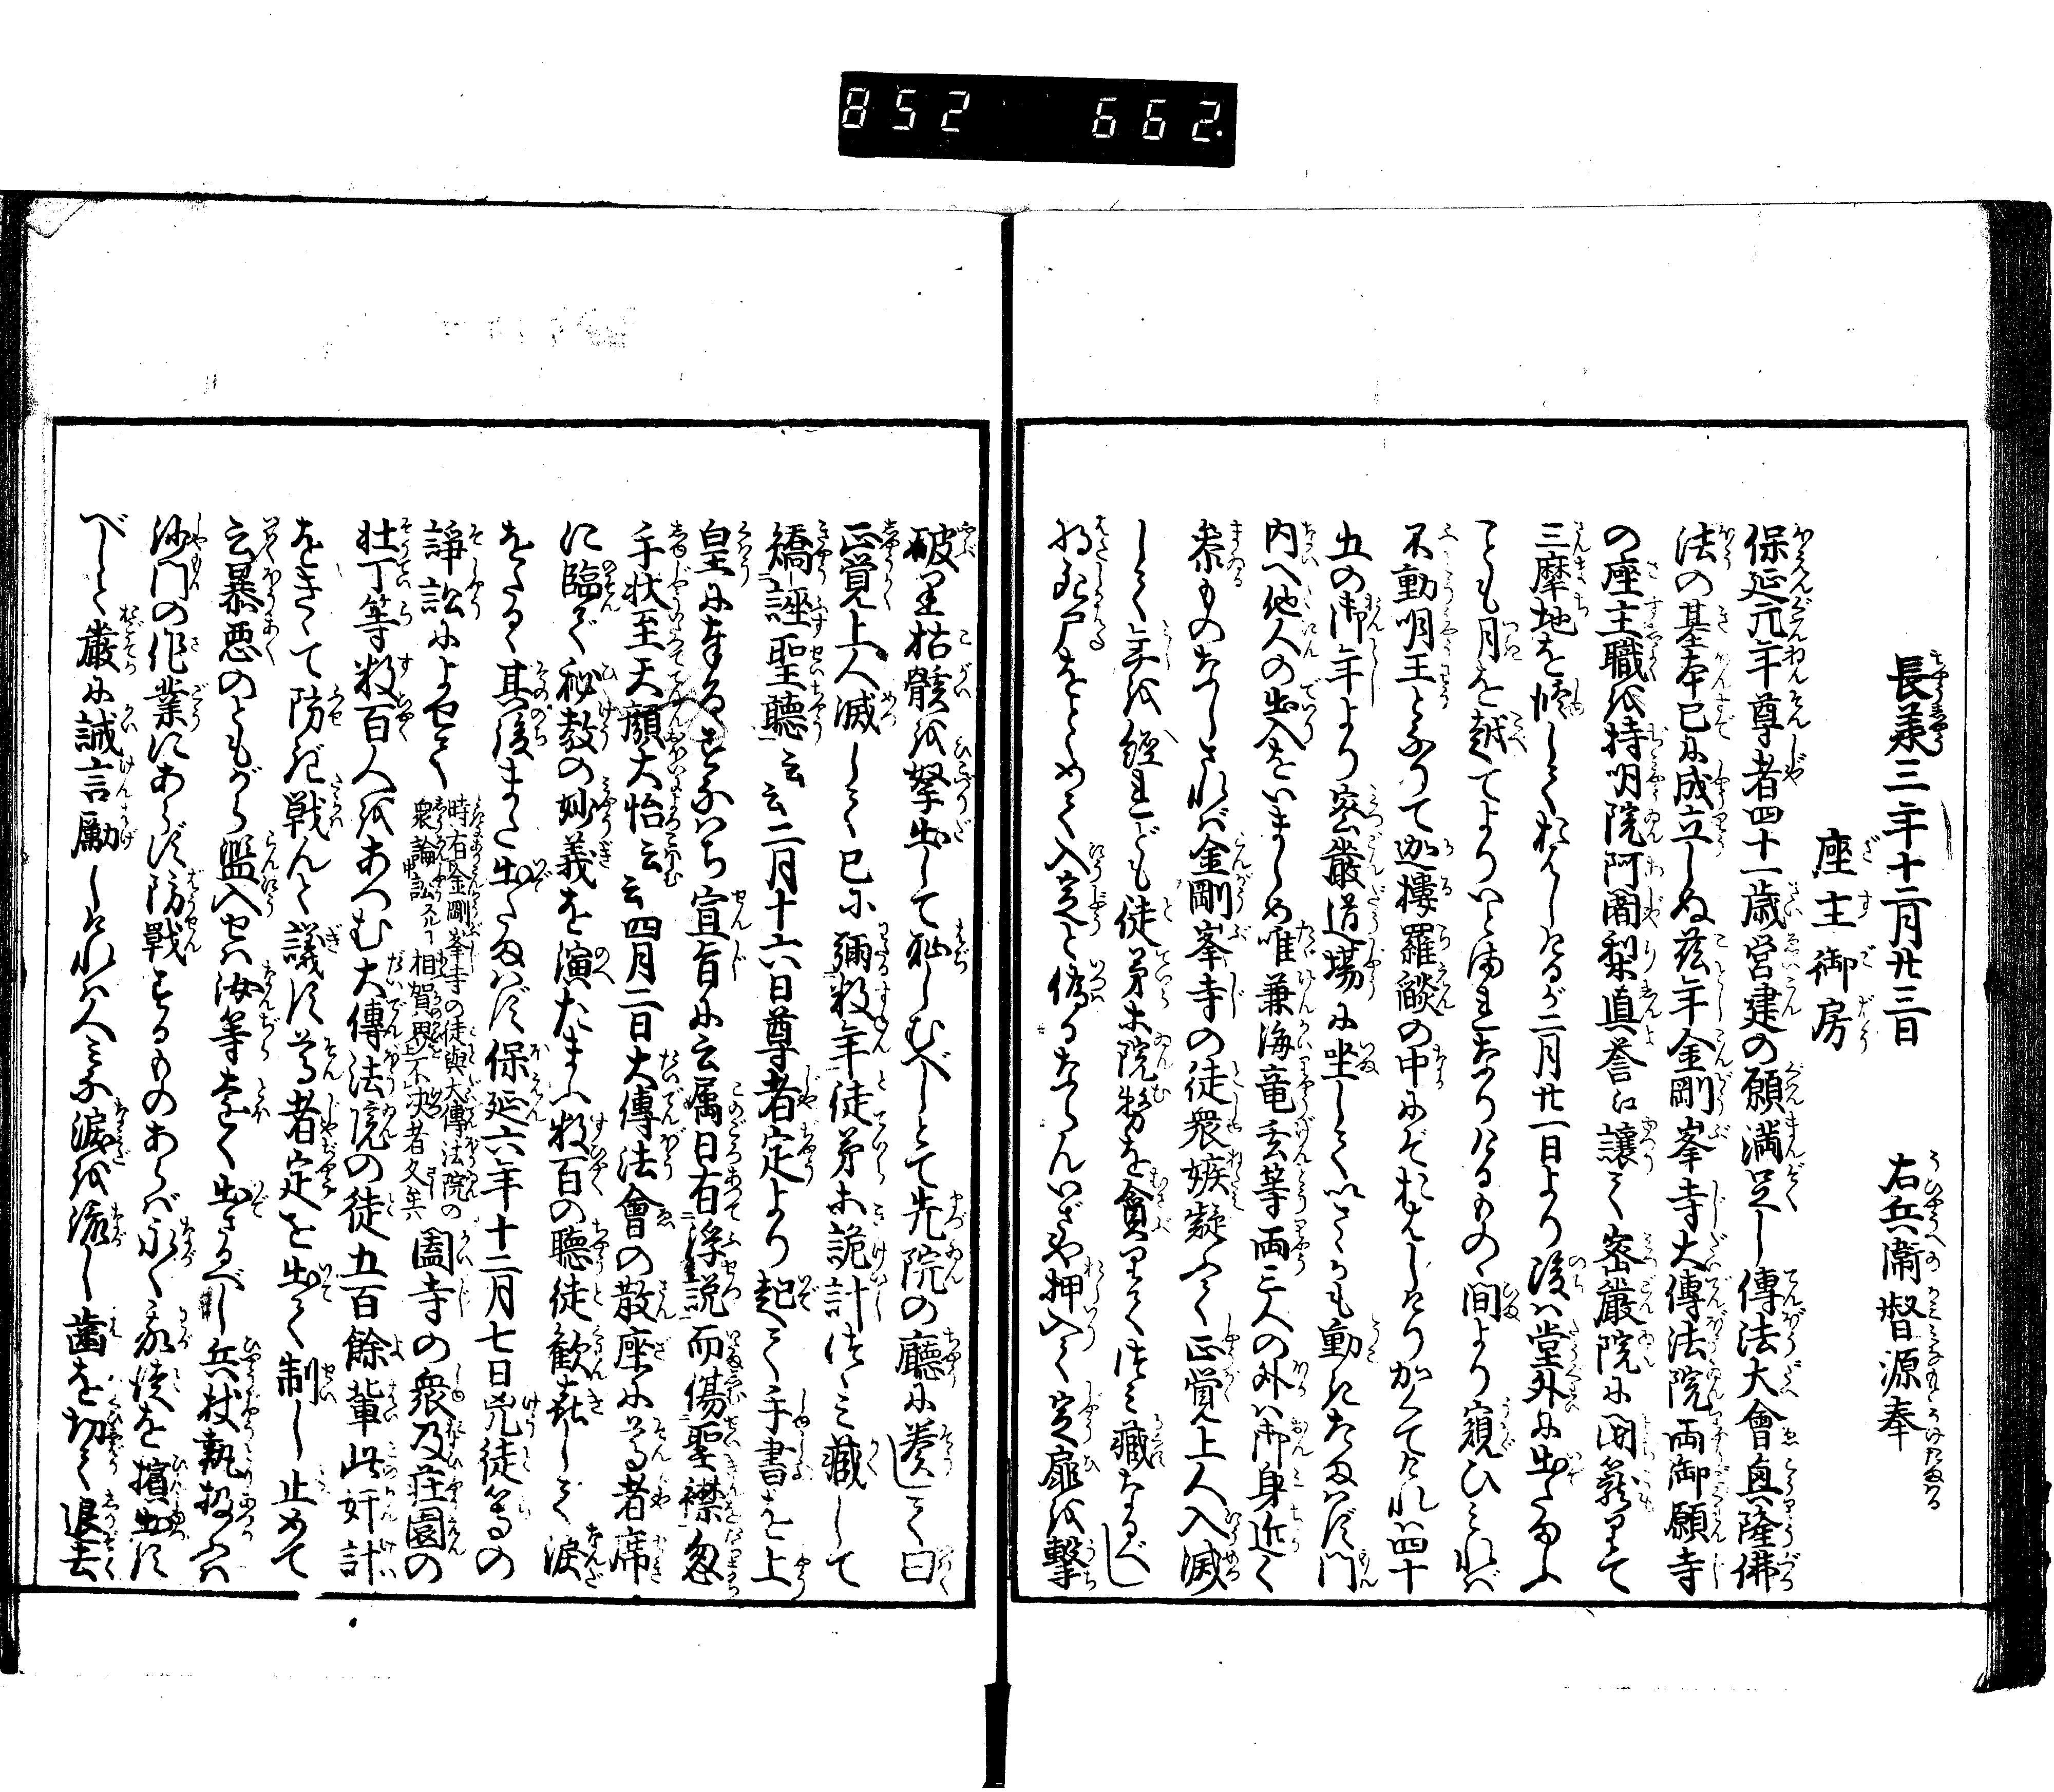 852 662.
長承三年十二月廿三日 右兵衛督源奉
座主御房
保延元年尊者四十一歳営建の願満足し傳法大會興隆佛
法の基本已に成立しぬ茲年金剛峯寺大傳法院両御願寺
の座主職を持明院阿闍梨真誉に譲て密厳院に閉籠りて
三摩地を修しておはしけるが二月廿一日より後は堂外に出たまふ
ことも月を越てよりいとまれなりけるもの間より窺ひみれば
不動明王となりて迦樓羅燄の中にぞおはしけりかくてこれハ四十
五の御年より密嚴道場に坐していさゝも動きたまはず門
内へ他人の出入をいましめ唯兼海竜玄等両三人の外ハ御身近く
参ものなしされば金剛峯寺の徒衆嫉疑ふて正覚上人入滅
して年を經れども徒弟等院務を貪りて深く藏なるべし
死尸をとゞめて入定と偽るなんいざや押入て定扉を撃
破り枯骸を拏出して恥しむべしとて先院の廳に奏して曰
正覚上人滅して已に彌数年徒弟等詭計深く藏して
矯誣聖聽云云二月十六日尊者定より起て手書を上
皇に奉るすなはち宣旨に云属日有浮説而傷聖襟忽
手状至天顔大怡云云四月二日大傳法會の散座に尊者席
に臨で秘教の妙義を演たまふ数百の聽徒歓喜して涙
をたる其後また出たまはず保延六年十二月七日兇徒等の
諍訟によせて 時有金剛峯寺の徒與大傳法院の衆論訟スル相賀界上不決者久矣 闔寺の衆及荘園の
壮丁等数百人をあつむ大傳法院の徒五百餘輩此奸計
をきゝて防ぎ戦んと議す尊者定を出て制し止めて
云暴悪のともがら濫入せハ汝等遠く出さるべし兵杖執扱ふハ
沙門の作業にあらず防戦するものあらば永く我徒を擯出す
べしと厳に誡言励しければ人みな涙を流し歯を切て退去